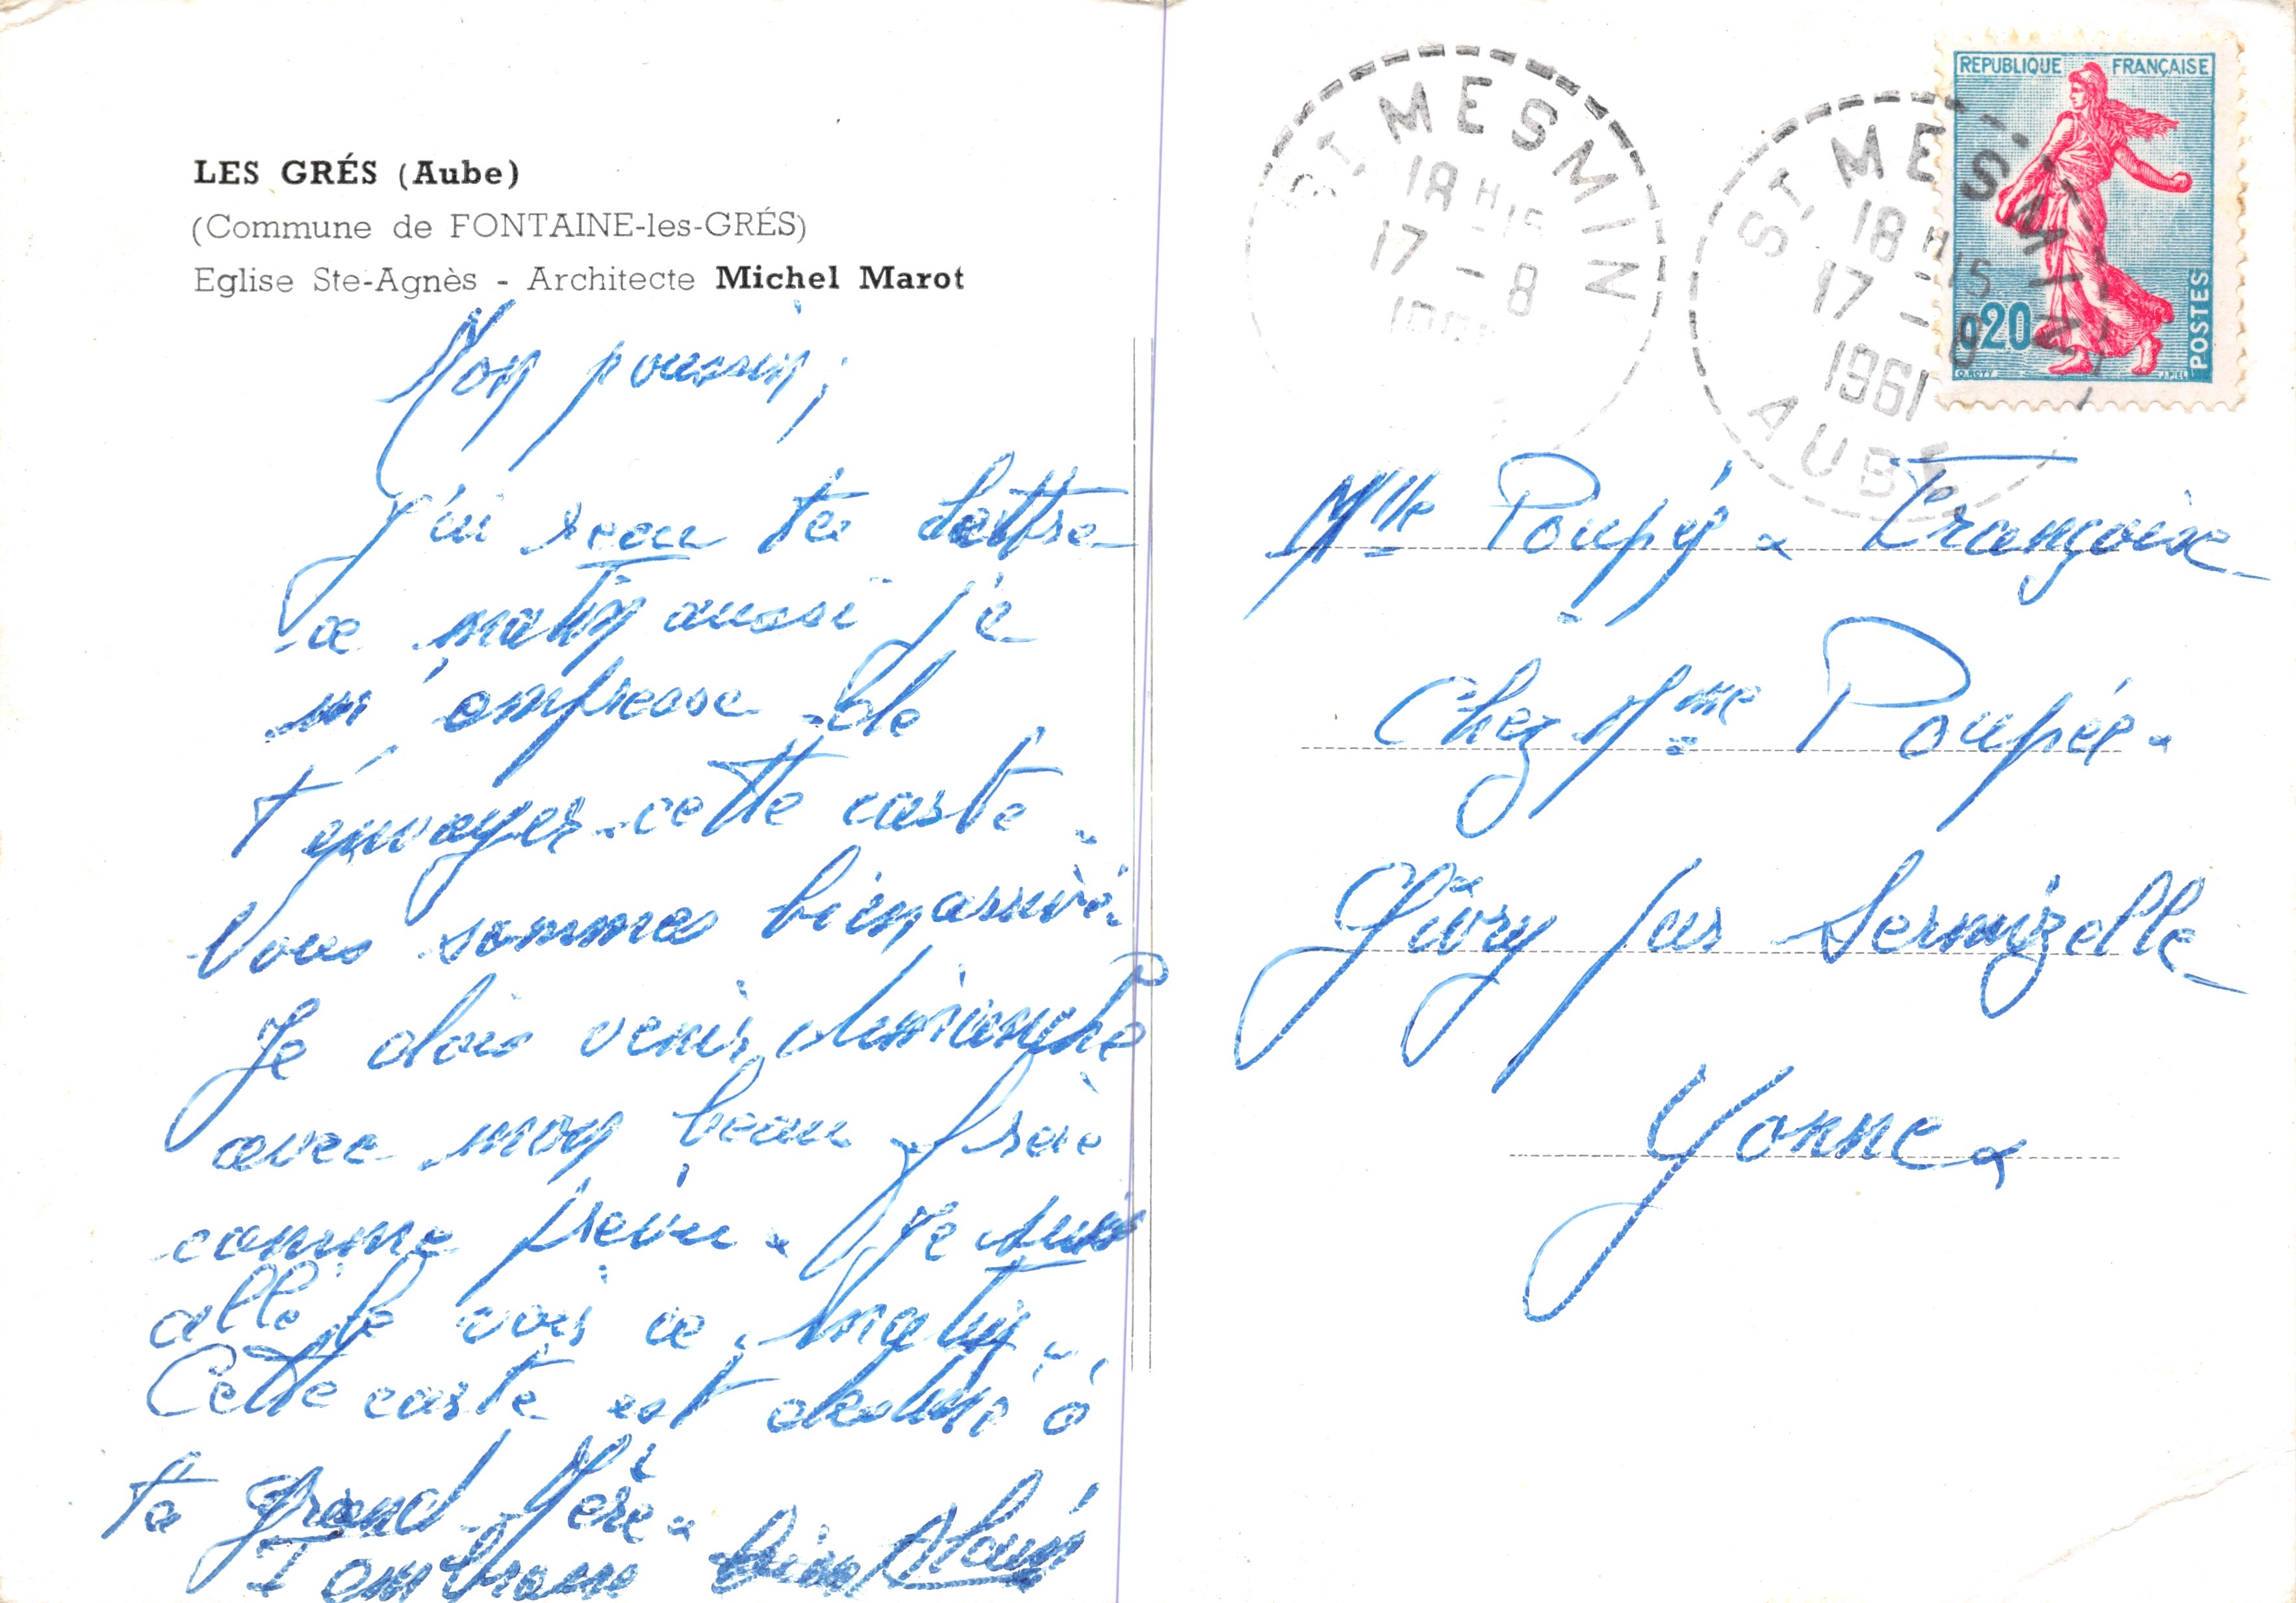 LES GRÉS (Aube)
(Commune de FONTAINE-les-GRÉS)
Eglise Ste-Agnès - Architecte Michel Marot
Mon poussin,
J'ai reçu ta lettre
ce matin aussi je
m'empresse de
t'envoyer cette carte.
Nous sommes bien arrivé.
Je dois venir dimanche
avec mon beau frère
comme prévu. Je suis
allé le voir ce matin.
Cette carte est destiné à
ta grand Mère.
T'embrasse bien Alain
ST MESMIN
18H15
17-8
ST MESMIN
18H15
17-8
1961
AUBE
REPUBLIQUE FRANÇAISE
0,20
POSTES
O.ROTY J.PIEL
Mlle Poupé. Françoise
Chez Mme Poupée.
Givry par Sermizelle
Yonne.